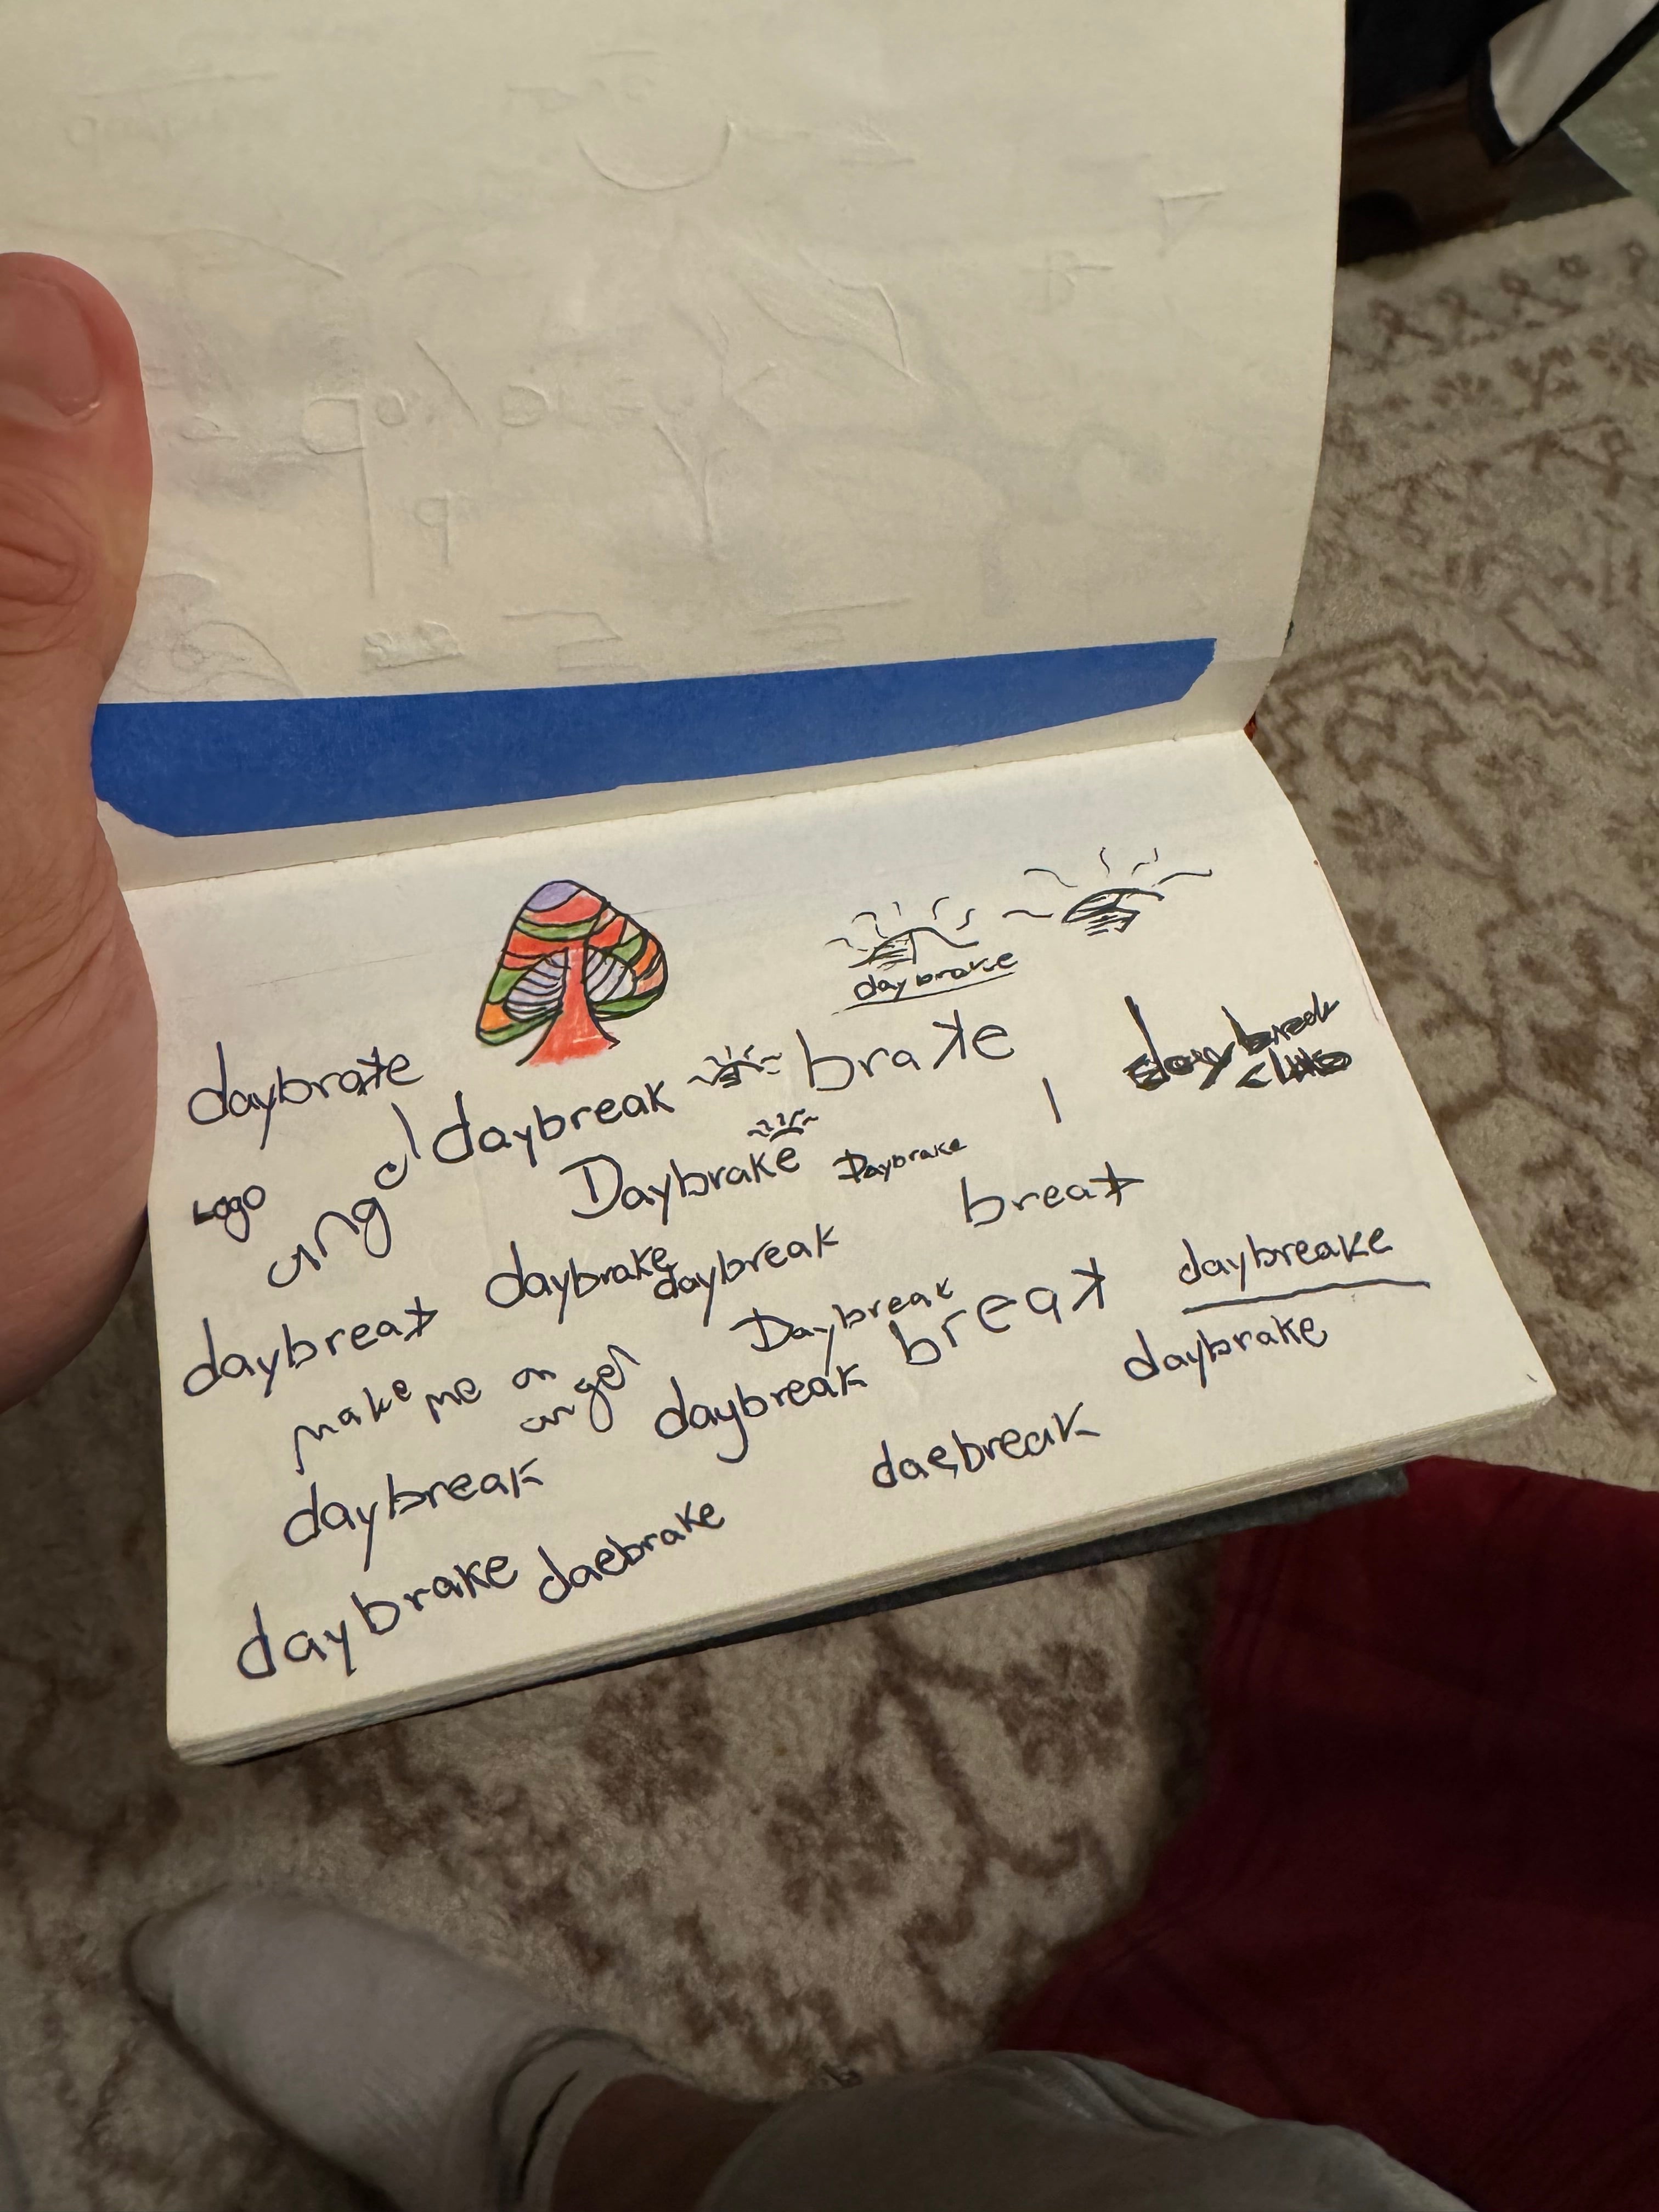 daybrake
daybrake
brake
daybreak
daybreak
club
Logo
angel
Daybrake
Daybrake
break
daybrake
daybreak
daybreak
Daybreak
break
daybreake
daybrake
make me an
angel
daybreak
daebreak
daybreak
daebrake
daybrake